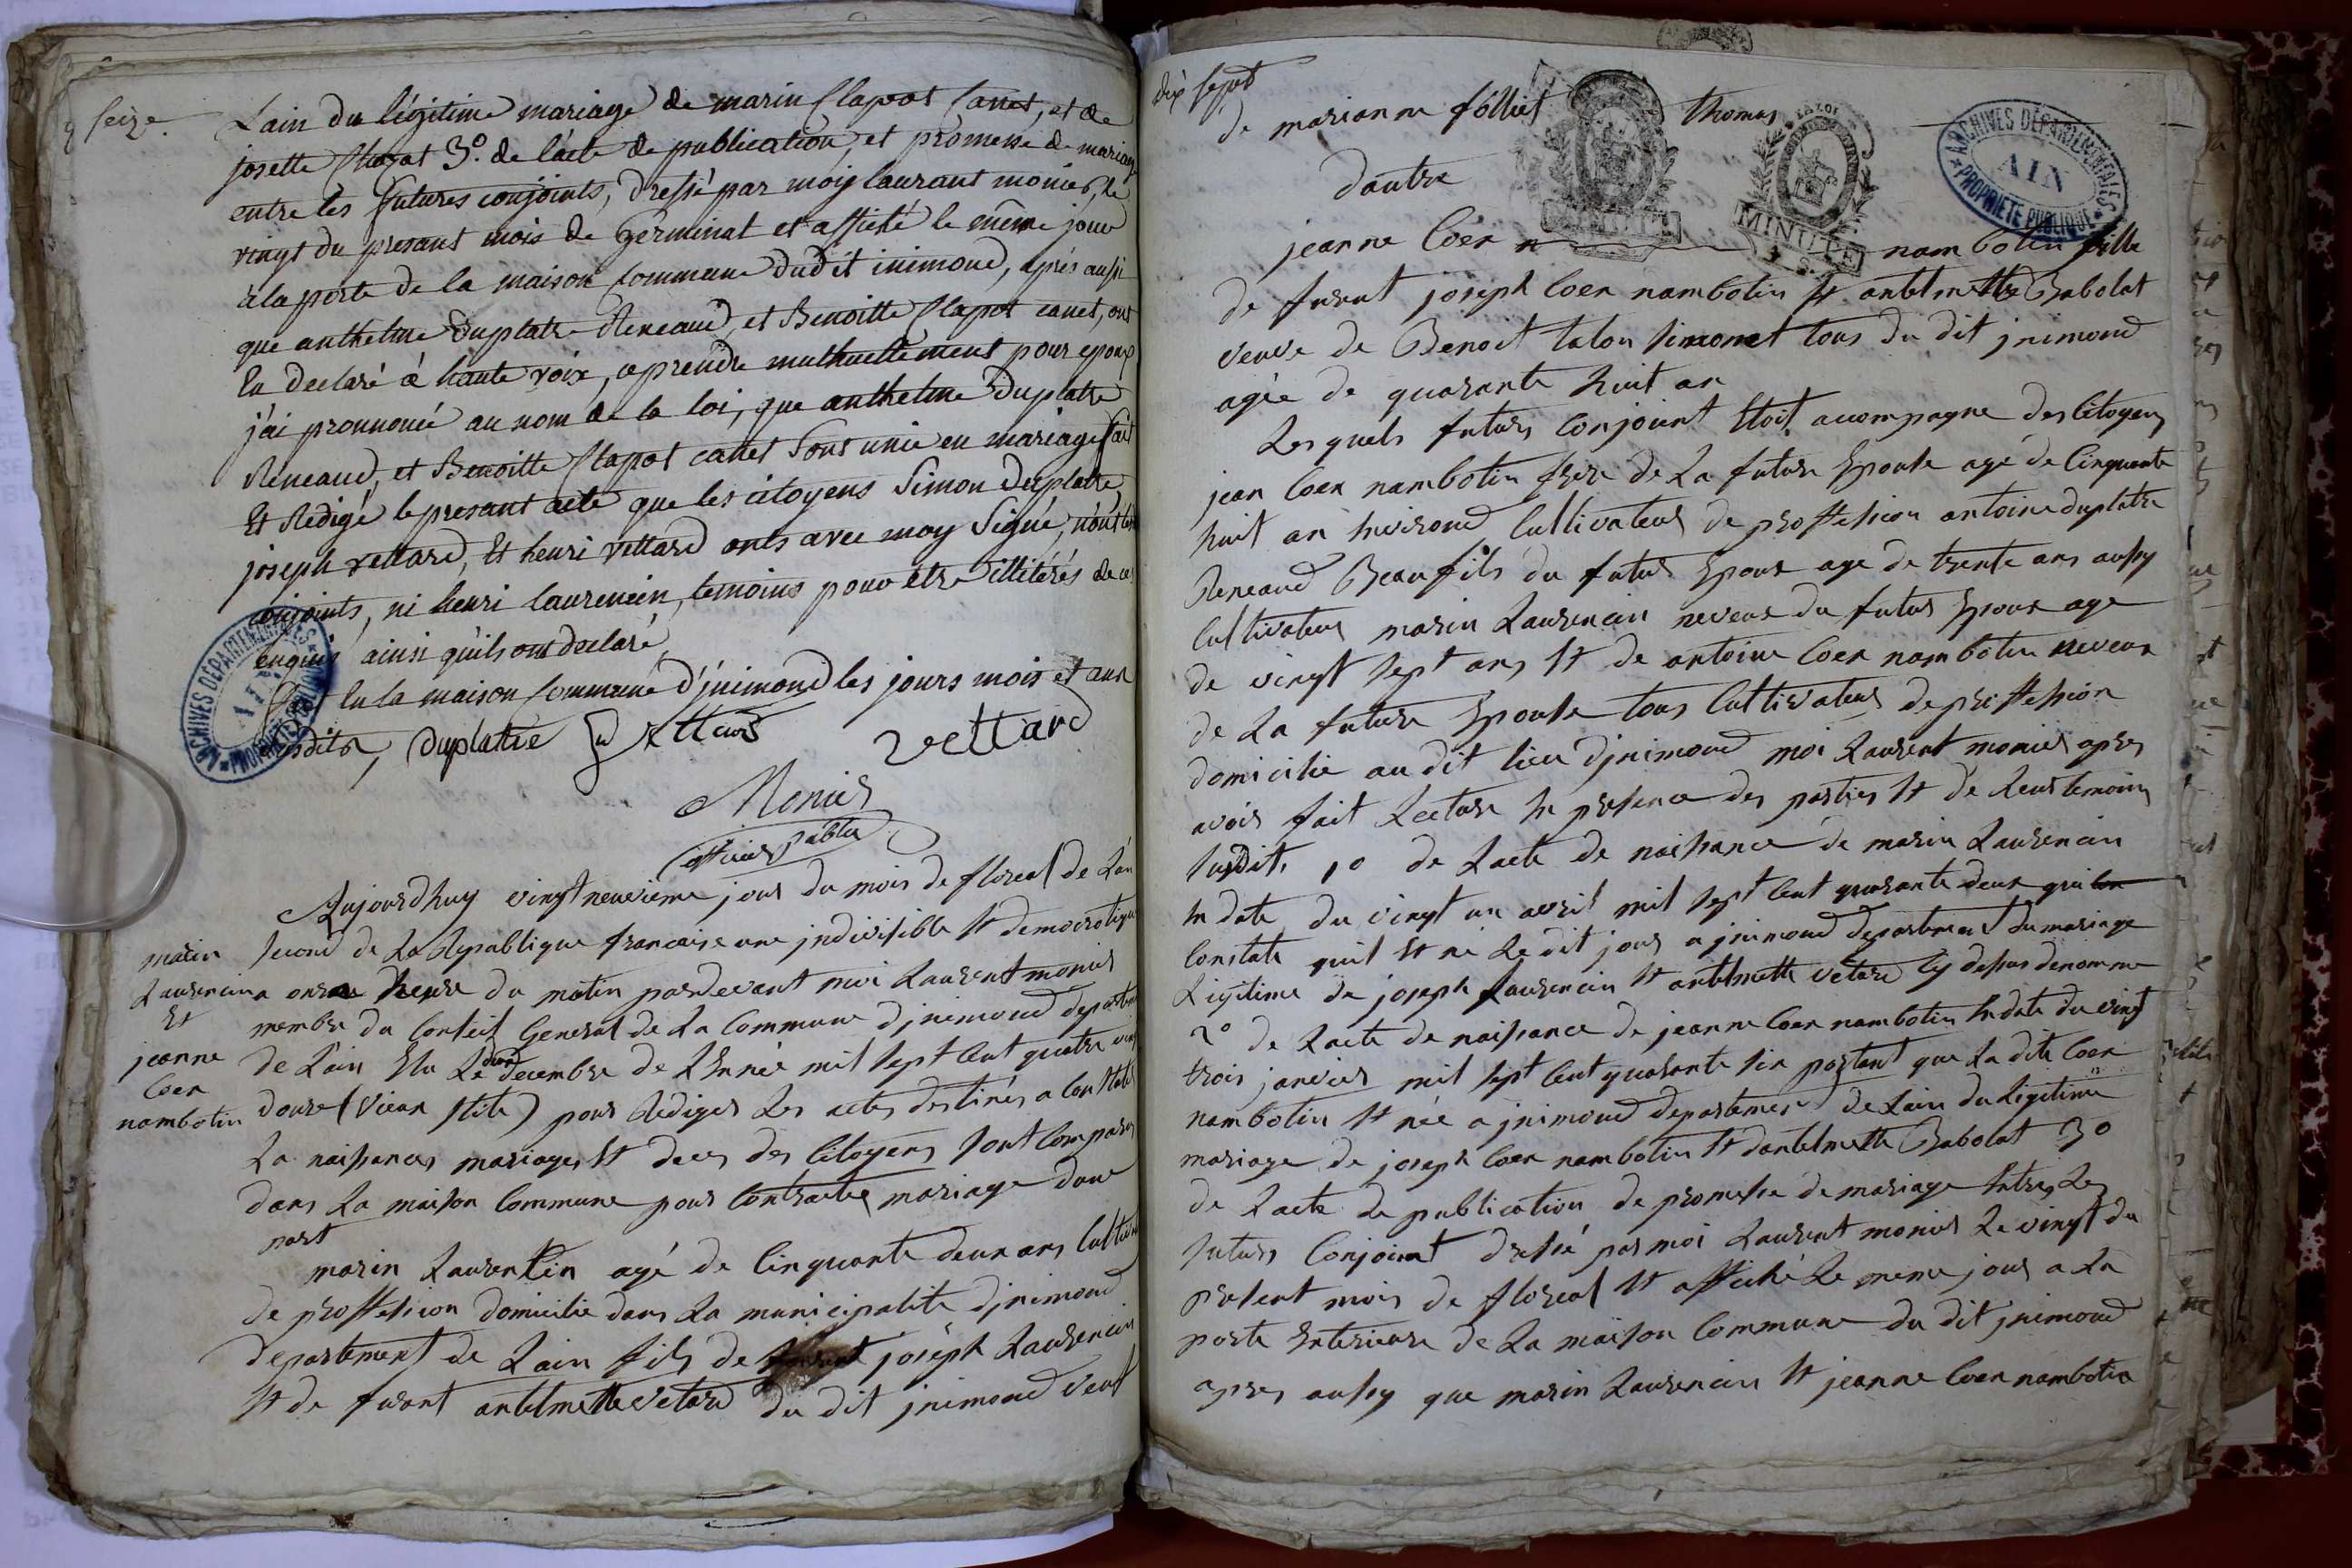 seize.
Lain du légitime mariage de marin Clapot Canet, et de
josette Clapat 3.º de lácte de publication, et promesse de mariage
entre les futures conjoints, dressé par moÿ laurant monier, le
vingt du presant mois de Germinat et affiché le même jour
a la porte de la maison commune dudit inimond, aprés aussi
que anthelme duplatre Reneaud, et Benoitte Clapot canet, ont
Eu declaré à haute voix, ce prendre muthuellement pour epoux
j'ai prononcé au nom de la loi, que anthelme Duplatre
Reneaud, et Benoitte Clapot canet Sont unie en mariage fait
Et Redigé le presant acte que les citoyens Simon Duplatre,
joseph vettard, Et henri vettard onts avec moy Signé, non les
conjoints, ni henri laurencin, temoins pour être illitérés de ce
enquis ainsi qu'ils ont declaré,
fait En la maison Commune d'jnimond les jours mois et an
susdits, duplatre vettard vettard
Monier
officier public
marin
Laurencin
Et
jeanne
Coer
nambotin
Aujourdhuy vingt neuvieme jour du mois de floreal de Lan
second de La Republique francaise une jndivisible Et democratique
a onze heure du matin pardevant moi Laurent monier
membre du Conseil General de La Commune djnimond departement
de Lain Elu Le deux decembre de Lannée mil sept Cent quatre vingt
douze (vieux stile) pour Rediger Les actes destinés a Constater
La naissances mariages Et deces des Citoyens sont Comparus
dans La maison Commune pour Contracter mariage dune
part
marin Laurentin agé de Cinquante deux ans Cultivateur
de proffession domicilié dans La municipalite djnimond
departement de Lain fils de joseph Laurencin
Et de furent antelmette vetard du dit jnimond veuf
dix sept
de marianne folliet Thomas
dautre
jeanne Coer n nambotin fille
de furent joseph Coer nambotin Et antelmette Babolat
veuve de Benoit talon simonet tous du dit jnimond
agée de quarante huit an
Lesquels futurs Conjoint Etoit acompagne des Citoyens
jean Coer nambotin frere de La future Epouse agé de Cinquante
huit an Environd Cultivateur de proffession antoine duplatre
Reneaud Beaufils du futur Epoux age de trente ans aussy
Cultivateur marin Laurencin neveux du futur Epoux age
de vingt sept ans Et de antoine Coer nambotin neveux
de La future Epouse tous Cultivateurs de proffession
domicilie au dit lieu djnimond moi Laurent monier apres
avoir fait Lecture En presence des parties Et de Leurs temoins
susdit, 1º de Lacte de naissance de marin Laurencin
En date du vingt un avril mil sept Cent quarante deux qui
Constate quil Et né Le dit jour a jnimond departement du mariage
Ligitime de joseph Laurencin Et antelmette vetard Cy dessus denomme
2º de Lacte de naissance de jeanne Coer nambotin En date du vingt
trois janvier mil sept Cent quarante six portant que La dite Coer
nambotin Et née a jnimond departement de Lain du Ligitime
mariage de joseph Coer nambotin Et dantelmette Babolat 3º
de Lacte de publication de promesse de mariage Entre Les
futurs Conjoint dressé par moi Laurent monier Le vingt du
present mois de floreal Et affiché Le meme jour a La
porte Exterieure de La maison Commune du dit jnimond
apres aussy que marin Laurencin Et jeanne Coer nambotin
MINUTE
ARCHIVES DÉPARTEMENTALES
AIN
PROPRIÉTÉ PUBLIQUE